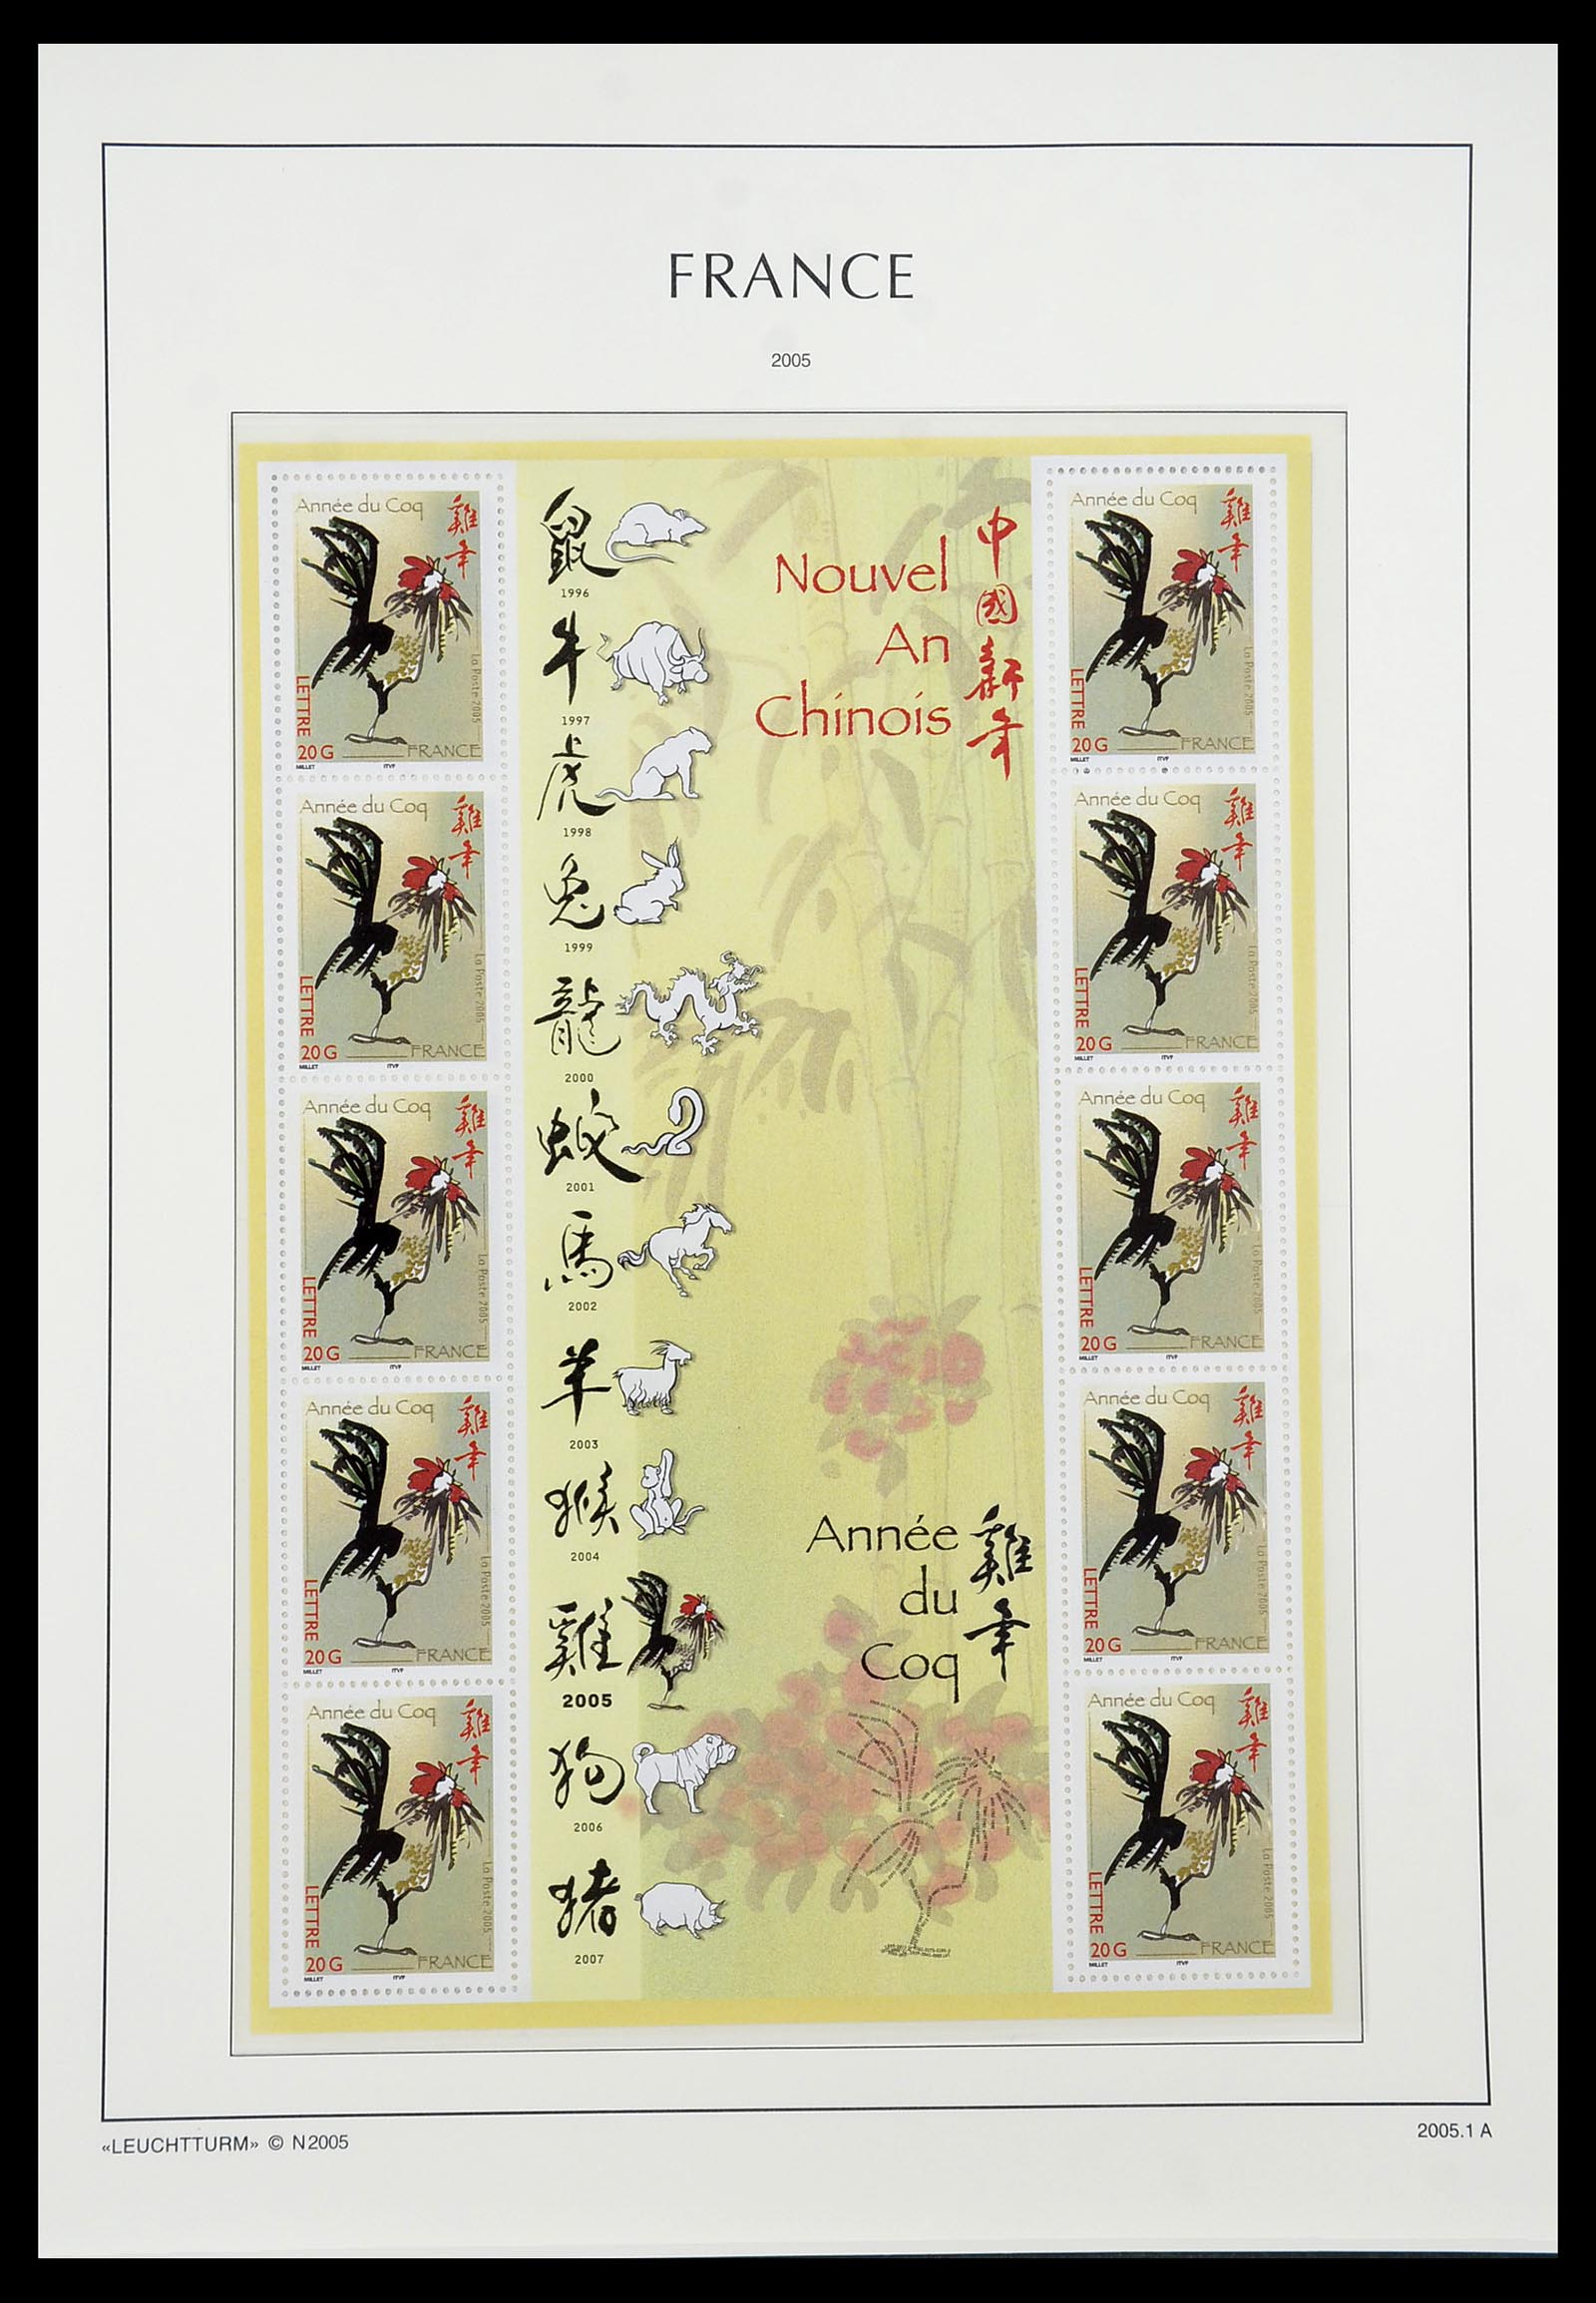 FRANCE
2005
Année du Coq
雞年
LETTRE
20 G
FRANCE
La Poste 2005
MILLET
ITVF
Année du Coq
雞年
LETTRE
20 G
FRANCE
La Poste 2005
MILLET
ITVF
Année du Coq
雞年
LETTRE
20 G
FRANCE
La Poste 2005
MILLET
ITVF
Année du Coq
雞年
LETTRE
20 G
FRANCE
La Poste 2005
MILLET
ITVF
Année du Coq
雞年
LETTRE
20 G
FRANCE
La Poste 2005
MILLET
ITVF
鼠
1996
牛
1997
虎
1998
兔
1999
龍
2000
蛇
2001
馬
2002
羊
2003
猴
2004
雞
2005
狗
2006
猪
2007
Nouvel
An
Chinois
中國新年
Année
du
Coq
雞年
Année du Coq
雞年
LETTRE
20 G
FRANCE
La Poste 2005
MILLET
ITVF
Année du Coq
雞年
LETTRE
20 G
FRANCE
La Poste 2005
MILLET
ITVF
Année du Coq
雞年
LETTRE
20 G
FRANCE
La Poste 2005
MILLET
ITVF
Année du Coq
雞年
LETTRE
20 G
FRANCE
La Poste 2005
MILLET
ITVF
Année du Coq
雞年
LETTRE
20 G
FRANCE
La Poste 2005
MILLET
ITVF
«LEUCHTTURM» © N2005
2005.1 A